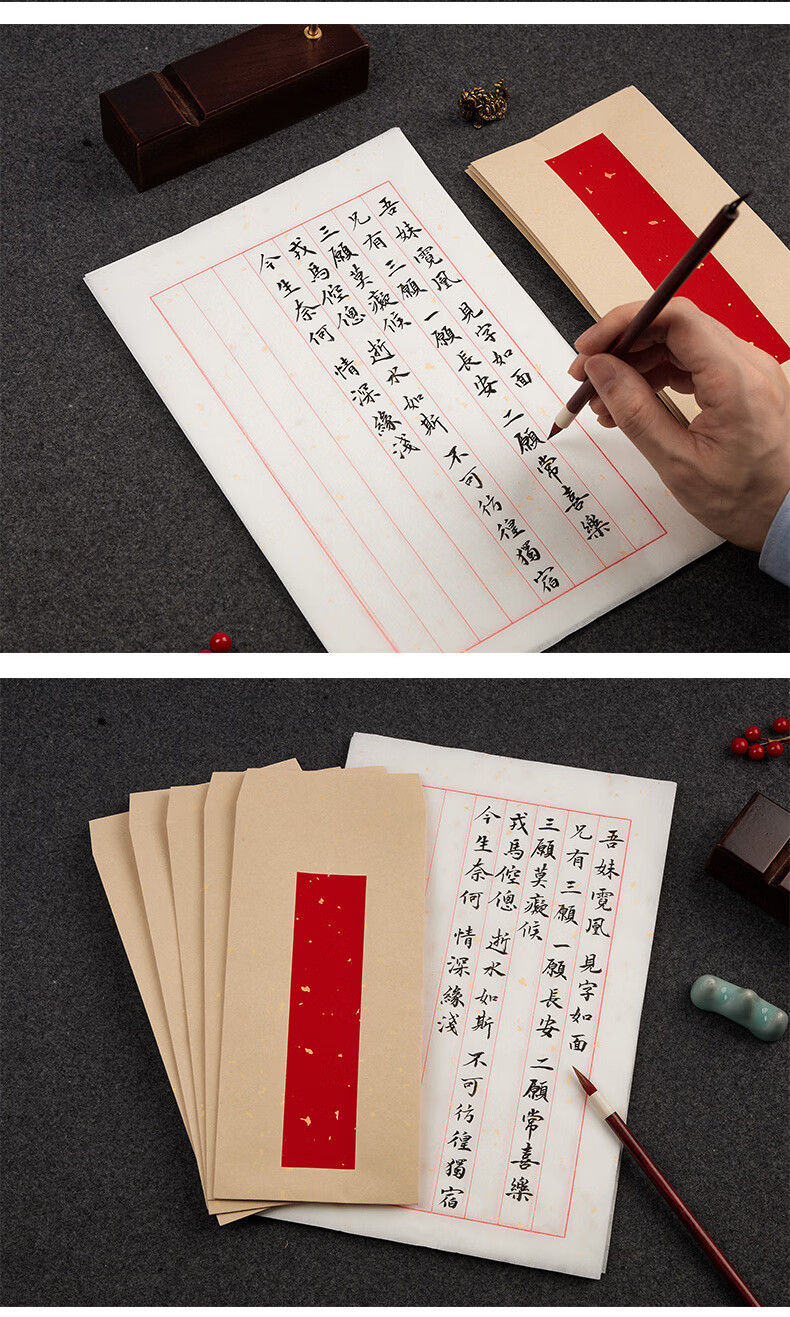 吾妹霓風 見字如面
兄有三願 一願長安 二願常喜樂
三願莫癡候
戎馬倥傯 逝水如斯 不可彷徨獨宿
今生奈何 情深緣淺
吾妹霓風 見字如面
兄有三願 一願長安 二願常喜樂
三願莫癡候
戎馬倥傯 逝水如斯 不可彷徨獨宿
今生奈何 情深緣淺